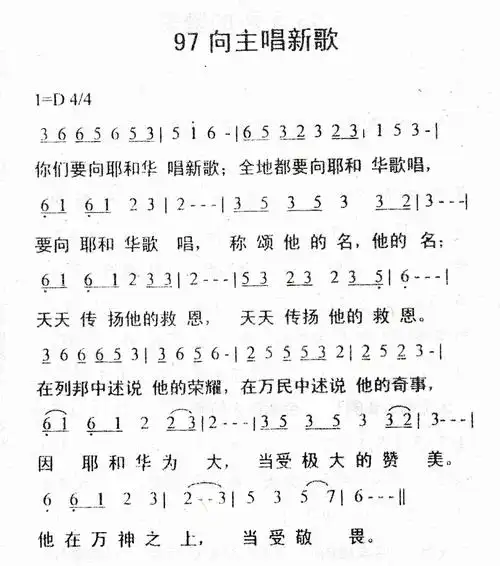 97 向主唱新歌
1=D 4/4
3 6 6 5 6 5 5 3 | 5 1 6 - | 6 5 3 2 3 2 3 | 1 5 3 - |
你们要向耶和华 唱新歌；全地都要向耶和 华歌唱，
6 1 6 1 2 3 | 2 - - - | 3 5 3 5 3 3 2 | 3 - - - |
要向 耶和 华歌 唱， 称 颂 他 的 名，他的 名；
6 1 6 1 2 3 3 | 2 - - - | 5 3 2 3 2 3 5 | 6 - - - |
天天 传 扬他的救 恩， 天天 传扬 他的 救 恩。
3 6 6 6 5 3 | 3 6 5 6 - | 2 5 5 5 3 2 | 2 5 2 3 - |
在列邦中述说 他的荣耀，在万民中述说 他的奇事，
6 1 6 1 2 2 3 | 2 - - - | 3 5 3 5 3 3 2 | 3 - - - |
因 耶和华为 大， 当受极大的赞 美。
6 6 1 2 2 3 | 2 - - 3 | 5 3 5 7 | 6 - - - ||
他在万神之上， 当受敬 畏。